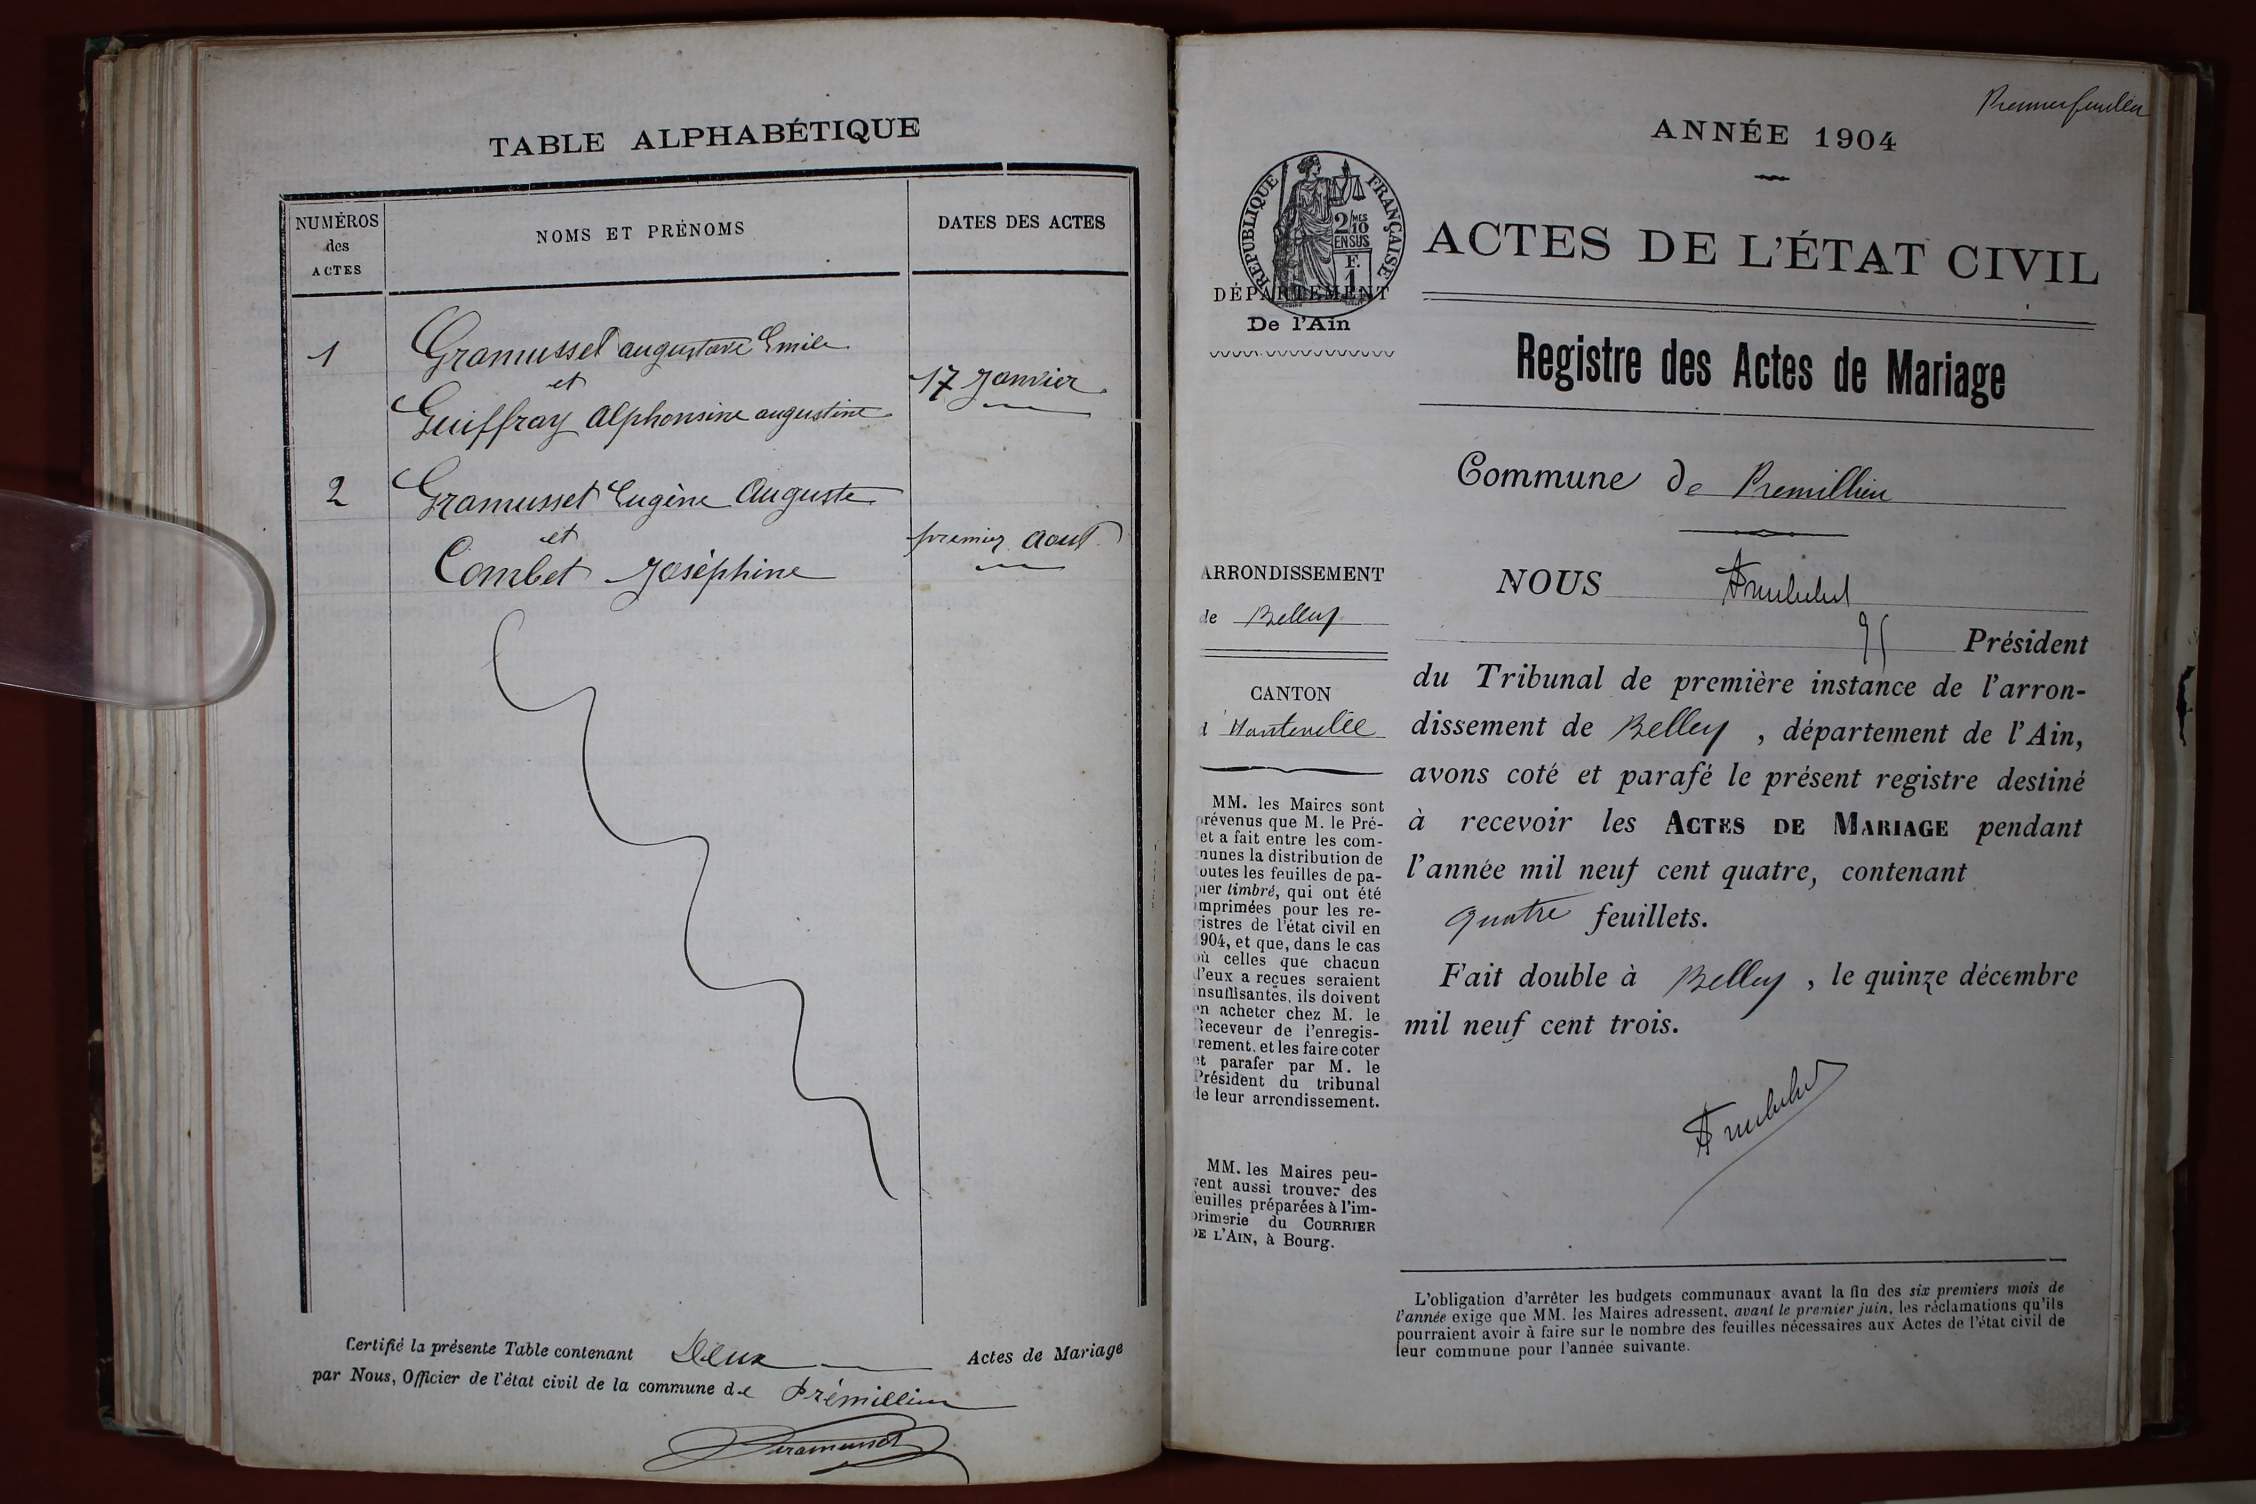 TABLE ALPHABÉTIQUE
NUMÉROS
des
ACTES
NOMS ET PRÉNOMS
DATES DES ACTES
1
Gramusset augustave Emile
et
Guiffray Alphonsine augustine
17 Janvier
2
Gramusset Eugène Auguste
et
Combet Joséphine
premier Aout
Certifié la présente Table contenant Deux Actes de Mariage
par Nous, Officier de l'état civil de la commune de Prémillieu
Gramusset
Premier feuillet
ANNÉE 1904
RÉPUBLIQUE FRANÇAISE
2/10 MES
EN SUS
F.
1
DÉPARTEMENT
De l'Ain
ACTES DE L'ÉTAT CIVIL
Registre des Actes de Mariage
Commune de Premillieu
ARRONDISSEMENT
de Belley
CANTON
d'Hauteville
MM. les Maires sont
prévenus que M. le Pré-
et a fait entre les com-
munes la distribution de
toutes les feuilles de pa-
pier timbré, qui ont été
imprimées pour les re-
gistres de l'état civil en
1904, et que, dans le cas
où celles que chacun
d'eux a reçues seraient
insuffisantes, ils doivent
en acheter chez M. le
Receveur de l'enregis-
trement, et les faire coter
et parafer par M. le
Président du tribunal
de leur arrondissement.
MM. les Maires peu-
vent aussi trouver des
feuilles préparées à l'im-
primerie du COURRIER
DE L'AIN, à Bourg.
NOUS
Président
du Tribunal de première instance de l'arron-
dissement de Belley, département de l'Ain,
avons coté et parafé le présent registre destiné
à recevoir les ACTES DE MARIAGE pendant
l'année mil neuf cent quatre, contenant
quatre feuillets.
Fait double à Belley, le quinze décembre
mil neuf cent trois.
L'obligation d'arrêter les budgets communaux avant la fin des six premiers mois de
l'année exige que MM. les Maires adressent, avant le premier juin, les réclamations qu'ils
pourraient avoir à faire sur le nombre des feuilles nécessaires aux Actes de l'état civil de
leur commune pour l'année suivante.